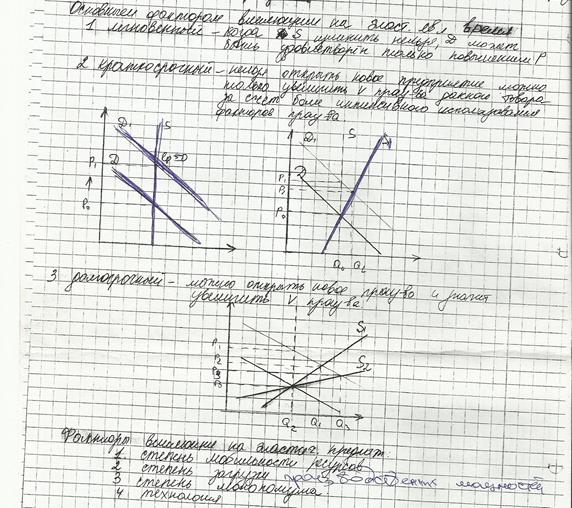 Основным фактором влияющим на эласт. явл. время
1 мгновенный – когда S изменить нельзя, D может
быть удовлетворён только повышением P
2 краткосрочный – нельзя открыть новое предприятие можно
только увеличить V пр-ва данного товара
за счет более интенсивного использования
факторов пр-ва
D1 S
D
P1
P0
D1 S
D
P1
P0
Q0 Q1
3 долгосрочный – можно открыть новое пр-во и значит
увеличить V пр-ва
S1
S2
P1
P2
Q2 Q1 Q3
Факторы влияющие на эластич. предлож.
1 степень мобильности ресурсов
2 степень загрузки производственных мощностей
3 степень монополизма
4 технология